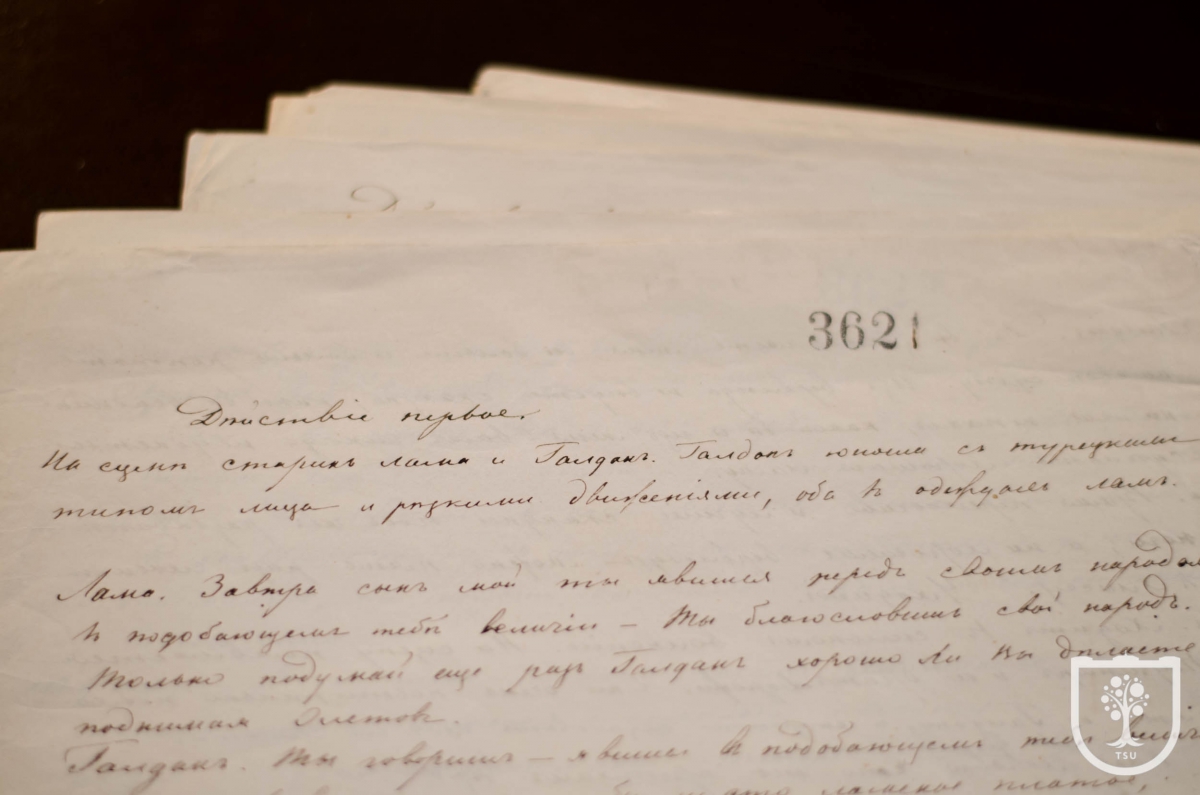 3621
Дѣйствіе первое.
На сценѣ старикъ лама и Галданъ. Галданъ юноша съ турецкимъ
типомъ лица и рѣзкими движеніями, оба въ одеждахъ ламъ.
Лама. Завтра сынъ мой ты явишся передъ своимъ народом
въ подобающемъ тебѣ величіи – ты благословишь свой народъ.
Только подумай еще разъ Галданъ хорошо ли вы дѣлаете
поднимая Олетовъ.
Галданъ. Ты говоришь – явишся въ подобающемъ тебѣ велич
платье,
TSU